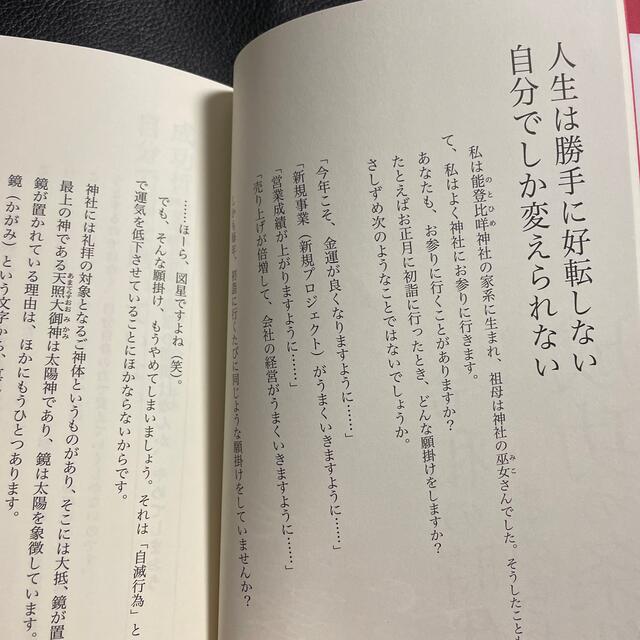 人生は勝手に好転しない
自分でしか変えられない
私は能登比咩神社の家系に生まれ、祖母は神社の巫女さんでした。そうしたことも
て、私はよく神社にお参りに行きます。
あなたも、お参りに行くことがありますか?
たとえばお正月に初詣に行ったとき、どんな願掛けをしますか?
さしずめ次のようなことではないでしょうか。
「今年こそ、金運が良くなりますように……」
「新規事業(新規プロジェクト)がうまくいきますように……」
「営業成績が上がりますように……」
「売り上げが倍増して、会社の経営がうまくいきますように……」
初詣に行くたびに同じような願掛けをしていませんか?
……ほーら、図星ですよね(笑)。
でも、そんな願掛け、もうやめてしまいましょう。それは「自滅行為」と
で運気を低下させていることにほかならないからです。
神社には礼拝の対象となるご神体というものがあり、そこには大抵、鏡が置
最上の神である天照大御神は太陽神であり、鏡は太陽を象徴しています。
鏡が置かれている理由は、ほかにもうひとつあります。
鏡(かがみ)という文字から、